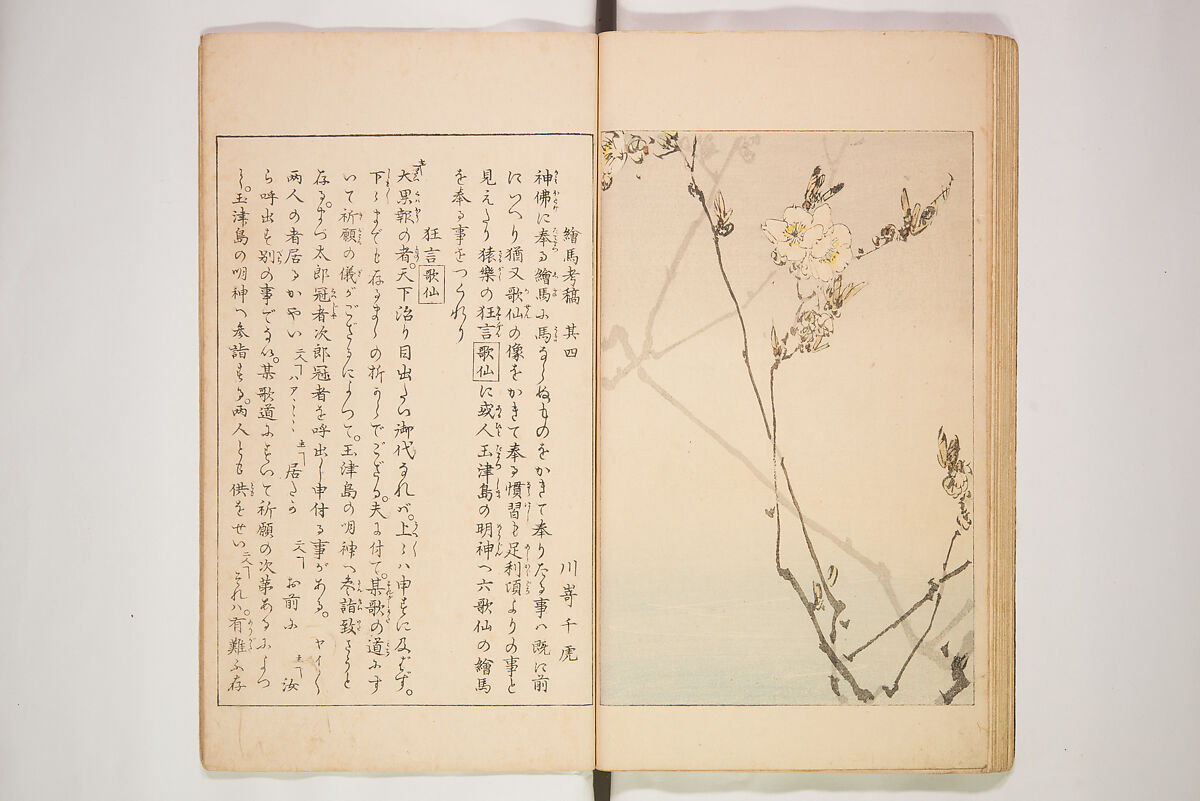 繪馬考稿 其四
川嵜千虎
神佛に奉る繪馬ふ馬ならぬものをかきて奉りたる事ハ既に前
にいへり猶又歌仙の像をかきて奉る慣習も足利頃よりの事と
見えたり猿樂の狂言歌仙に或人玉津島の明神へ六歌仙の繪馬
を奉る事をつくれり
狂言歌仙
大果報の者。天下治り目出たい御代なれバ。上々ハ申すに及ばず。
下々までも存るまゝの折からでござる。夫に付て。某歌の道にす
いて祈願の儀がござるによつて。玉津島の明神へ参詣致さうと
存る。まづ太郎冠者次郎冠者を呼出し申付る事がある。ヤイ〳〵
両人の者居るかやい 二人 ハアヽヽヽ 主 居たか 二人 お前に 主 汝
ら呼出すハ別の事でない。某歌道にすいて祈願の次第あるによつ
て。玉津島の明神へ参詣する。両人とも供をせい 二人 これハ。有難ふ存